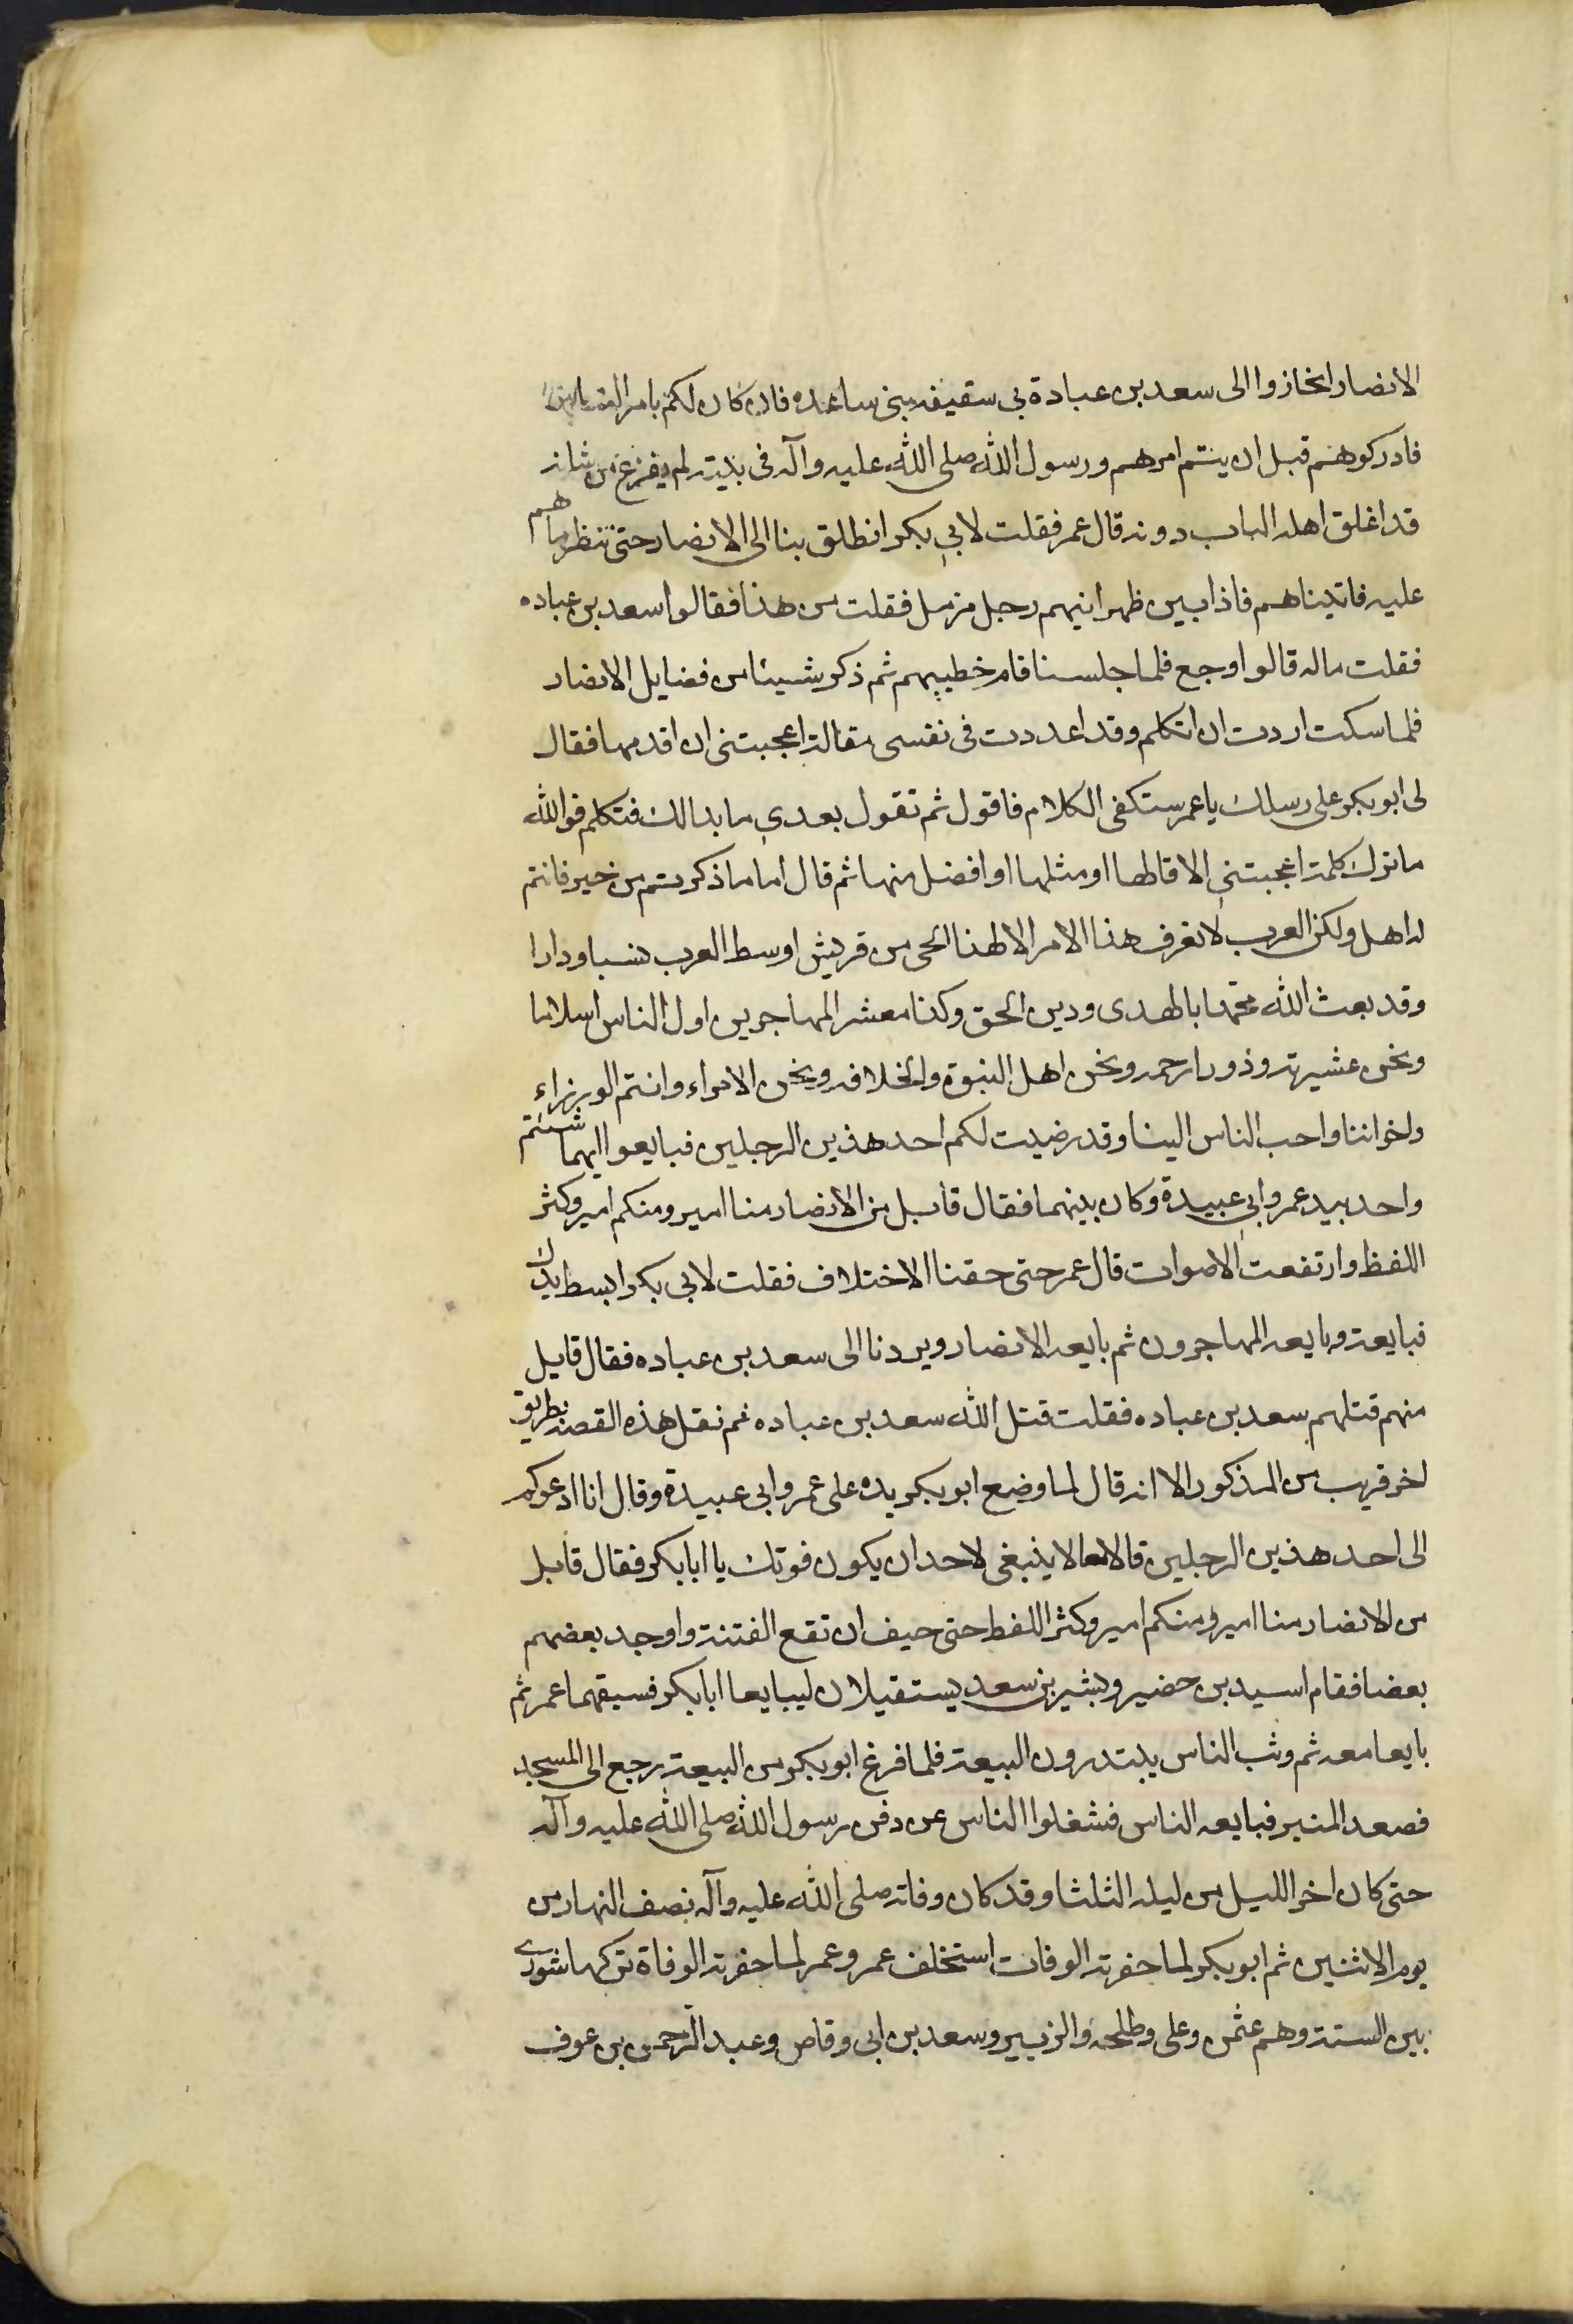 الانصار انحازوا الى سعد بن عبادة فى سقيفه بنى ساعده فان كان لكم بامر الناس
فادركوهم قبل ان يتم امرهم ورسول الله صلى الله عليه وآله فى بيته لم يفرغ من شانه
قد اغلق اهله الباب دونه قال عمر فقلت لابى بكر انطلق بنا الى الانصار حتى ننظر ما هم
عليه فاتيناهم فاذا بين ظهرانيهم رجل مزمل فقلت من هذا فقالوا سعد بن عباده
فقلت ماله قالوا وجع فلما جلسنا قام خطيبهم ثم ذكر شيئا من فضايل الانصار
فلما سكت اردت ان اتكلم وقد اعددت فى نفسى مقالة اعجبتنى ان اقدمها فقال
لى ابو بكر على رسلك يا عمر ستكفى الكلام فاقول ثم تقول بعدى ما بدالك فتكلم فوالله
ما ترك كلمة اعجبتنى الا قالها او مثلها او افضل منها ثم قال اما ما ذكرتم من خير فانتم
له اهل ولكن العرب لا تعرف هذا الامر الا لهذا الحى من قريش اوسط العرب نسبا ودارا
وقد بعث الله محمدا بالهدى ودين الحق وكنا معشر المهاجرين اول الناس اسلاما
ونحن عشيرته وذوو ارحمه ونحن اهل النبوة والخلافه ونحن الامراء وانتم الوزراء
واخواننا واحب الناس الينا وقد رضيت لكم احد هذين الرجلين فبايعوا ايهما شئتم
واخذ بيد عمر وابى عبيدة وكان بينهما فقال قايل من الانصار منا امير ومنكم امير وكثر
اللفظ وارتفعت الاصوات قال عمر حتى خفنا الاختلاف فقلت لابى بكر ابسط يدك
فبايعته وبايعه المهاجرون ثم بايعه الانصار وبردنا الى سعد بن عباده فقال قايل
منهم قتلهم سعد بن عباده فقلت قتل الله سعد بن عباده ثم نقل هذه القصة بطريق
اخر قريب من المذكور الا انه قال لما وضع ابو بكر يده على عمر وابى عبيدة وقال انا ادعوكم
الى احد هذين الرجلين قالا معا لا ينبغى لاحد ان يكون فوتك يا ابا بكر فقال قايل
من الانصار منا امير ومنكم امير وكثر اللفط حتى خيف ان تقع الفتنة واوجد بعضهم
بعضا فقام اسيد بن حضير وبشير بن سعد يستقيلان ليبايعا ابا بكر فسبقهما عمر ثم
بايعا معه ثم وثب الناس يبتدرون البيعة فلما فرغ ابو بكر من البيعة رجع الى المسجد
فصعد المنبر فبايعه الناس فشغلوا الناس عن دفن رسول الله صلى الله عليه وآله
حتى كان اخر الليل من ليله الثلثا وقد كان وفاته صلى الله عليه وآله نصف النهار من
يوم الاثنين ثم ابو بكر لما حضرته الوفات استخلف عمر وعمر لما حضرته الوفاة تركها شورى
بين الستة وهم عثمن وعلى وطلحه والزبير وسعد بن ابى وقاص وعبد الرحمن بن عوف